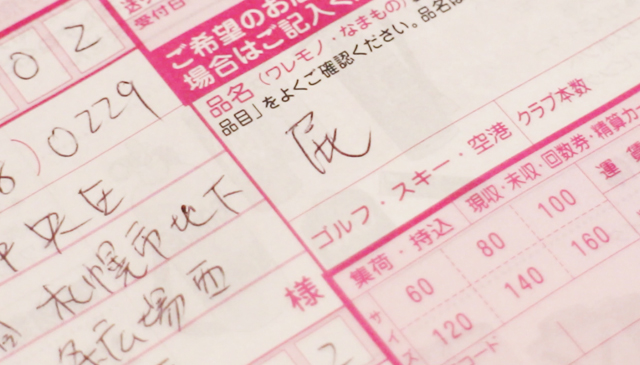 受付日
02
ご希望のお
場合はご記入く
品名(ワレモノ・なまもの
品目」をよくご確認ください。品名は
)0229
屁
中央区
札幌市地下
広場西
様
ゴルフ・スキー・空港
クラブ本数
集荷・持込
現収・未収・回数券・精算カ
運賃
サイズ
60 80 100
120 140 160
コード
2